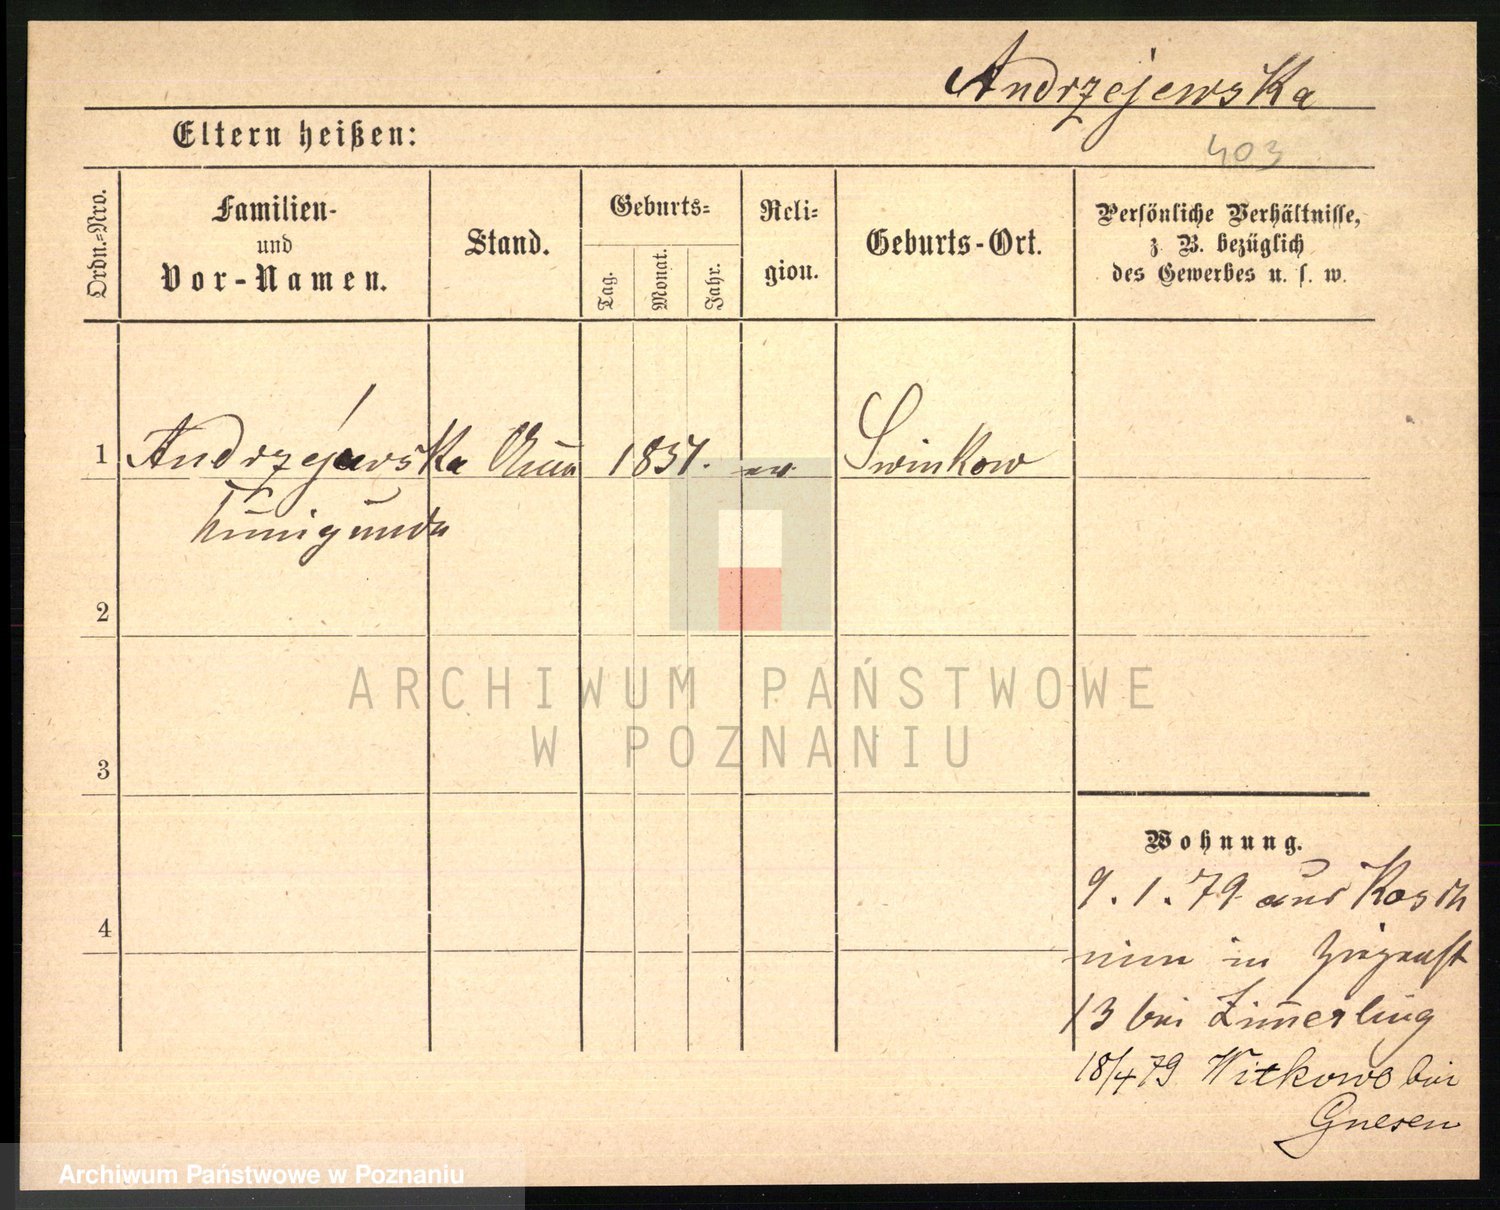 Andrzejewska
Eltern heißen:
403
Ordn.=Nro.
Familien-
und
Vor-Namen.
Stand.
Geburts=
Tag.
Monat.
Jahr.
Reli=
gion.
Geburts-Ort.
Persönliche Verhältnisse,
z. B. bezüglich
des Gewerbes u. s. w.
1 Andrzejewska 1857. Swinkow
Kunigunda
2
3
4
Wohnung.
9.1.79 aus Kosch
min in
13 bei Zimerling
18/4 79 Witkowo bei
Gnesen
ARCHIWUM PAŃSTWOWE
W POZNANIU
Archiwum Państwowe w Poznaniu